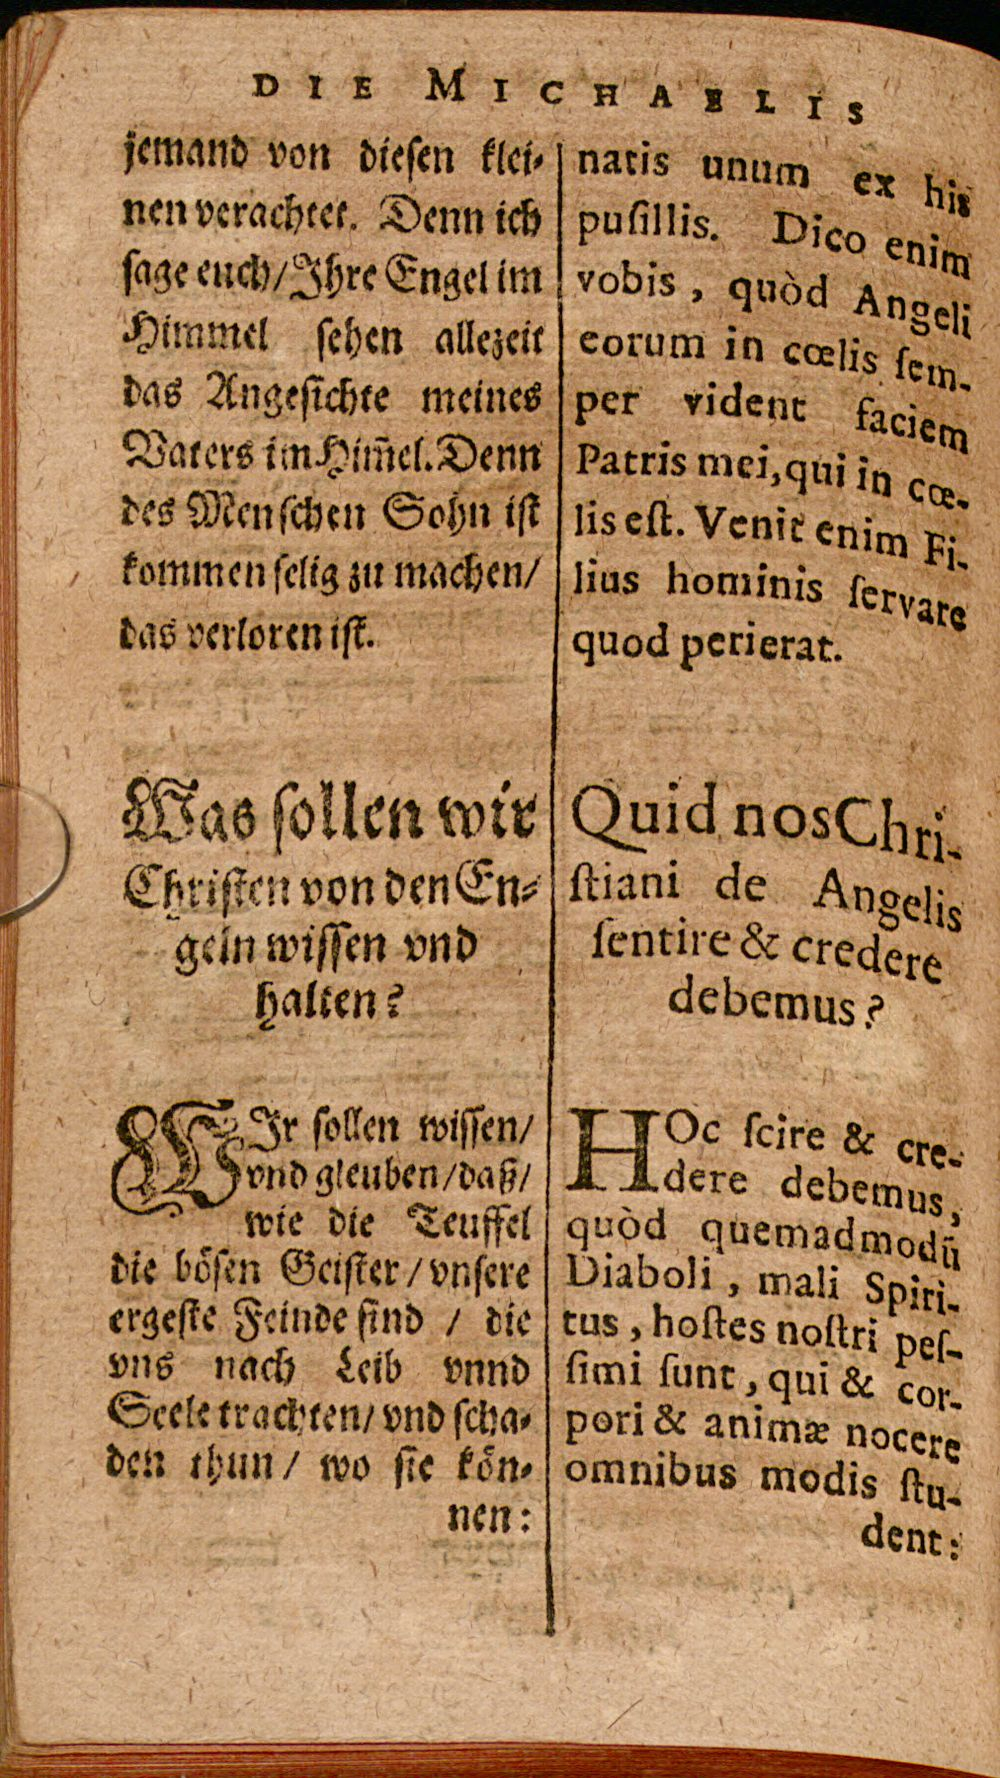 DIE MICHAELIS
jemand von diesen klei-
nen verachtet. Denn ich
sage euch/Ihre Engel im
Himmel sehen allezeit
das Angesichte meines
Vaters im Him̃el. Denn
des Menschen Sohn ist
kommen selig zu machen/
das verloren ist.
Was sollen wir
Christen von den En-
geln wissen vnd
halten?
WIr sollen wissen/
vnd gleuben/daß/
wie die Teuffel
die bösen Geister/vnsere
ergeste Feinde sind / die
vns nach Leib vnnd
Seele trachten/vnd scha-
den thun / wo sie kön-
nen:
natis unum ex his
pusillis. Dico enim
vobis, quòd Angeli
eorum in cœlis ſem-
per vident faciem
Patris mei, qui in cœ-
lis eſt. Venit enim Fi-
lius hominis ſervare
quod perierat.
Quid nos Chri-
ſtiani de Angelis
ſentire & credere
debemus?
HOc ſcire & cre-
dere debemus,
quòd quemadmodū
Diaboli, mali Spiri-
tus, hoſtes noſtri peſ-
ſimi ſunt, qui & cor-
pori & animæ nocere
omnibus modis ſtu-
dent: